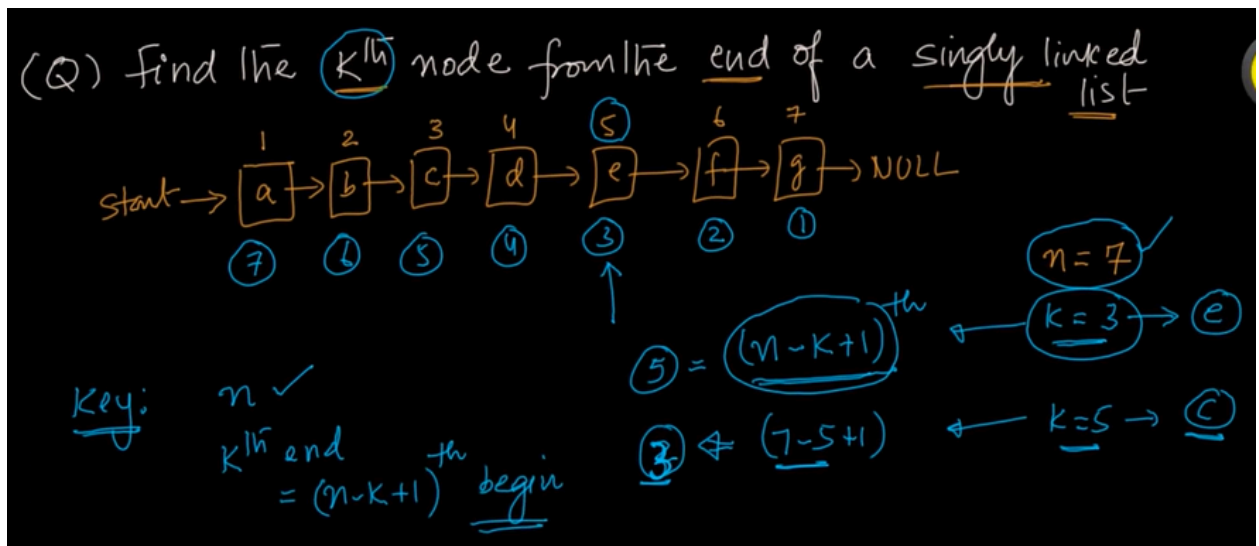 (Q) Find the Kth node from the end of a singly linked
list
1 2 3 4 5 6 7
start → a → b → c → d → e → f → g → NULL
7 6 5 4 3 2 1
n = 7 ✓
5 = (n-K+1)th ← K = 3 → e
3 ⇐ (7-5+1) ← K=5 → c
Key: n ✓
Kth end
= (n-K+1)th begin